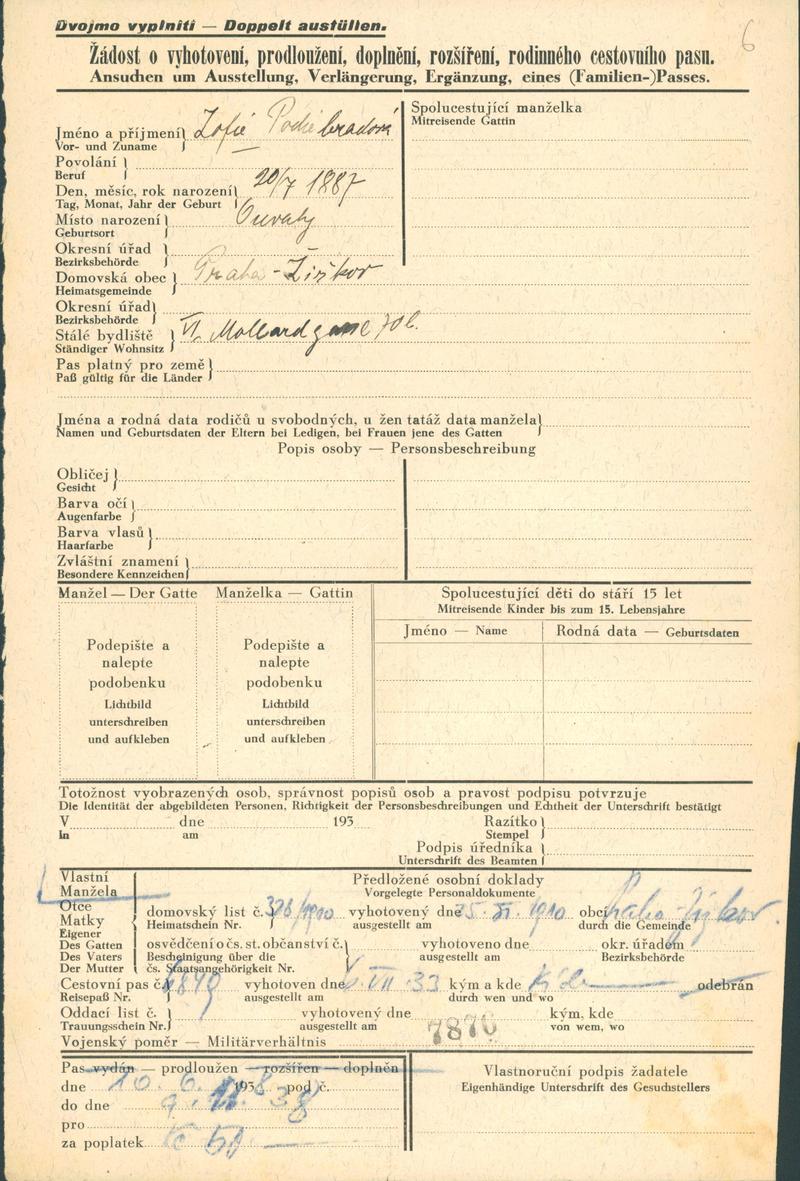 Dvojmo vyplniti — Doppelt austüllen.
6
Žádost o vyhotovení, prodloužení, doplnění, rozšíření, rodinného cestovního pasu.
Ansuchen um Ausstellung, Verlängerung, Ergänzung, eines (Familien-)Passes.
Jméno a příjmení Zofie Poděbradová
Vor- und Zuname
Spolucestující manželka
Mitreisende Gattin
Povolání
Beruf
Den, měsíc, rok narození 20/7 1887
Tag, Monat, Jahr der Geburt
Místo narození Ouvaly
Geburtsort
Okresní úřad
Bezirksbehörde
Domovská obec Praha-Žižkov
Heimatsgemeinde
Okresní úřad
Bezirksbehörde
Stálé bydliště VI. Mollardgasse
Ständiger Wohnsitz
Pas platný pro země
Paß gültig für die Länder
Jména a rodná data rodičů u svobodných, u žen tatáž data manžela
Namen und Geburtsdaten der Eltern bei Ledigen, bei Frauen jene des Gatten
Popis osoby — Personsbeschreibung
Obličej
Gesicht
Barva očí
Augenfarbe
Barva vlasů
Haarfarbe
Zvláštní znamení
Besondere Kennzeichen
Manžel — Der Gatte Manželka — Gattin
Podepište a
nalepte
podobenku
Lichtbild
unterschreiben
und aufkleben
Podepište a
nalepte
podobenku
Lichtbild
unterschreiben
und aufkleben
Spolucestující děti do stáří 15 let
Mitreisende Kinder bis zum 15. Lebensjahre
Jméno — Name Rodná data — Geburtsdaten
Totožnost vyobrazených osob, správnost popisů osob a pravost podpisu potvrzuje
Die Identität der abgebildeten Personen, Richtigkeit der Personsbeschreibungen und Echtheit der Unterschrift bestätigt
V dne 193
In am
Razítko
Stempel
Podpis úředníka
Unterschrift des Beamten
Vlastní
Manžela
Otce
Matky
Eigener
Des Gatten
Des Vaters
Der Mutter
Předložené osobní doklady
Vorgelegte Personaldokumente
domovský list č. 328/1910 vyhotovený dne 25. XI. 1910 obcí Praha-Žižkov
Heimatschein Nr. ausgestellt am durch die Gemeinde
osvědčení o čs. st. občanství č. vyhotoveno dne okr. úřadem
Bescheinigung über die ausgestellt am Bezirksbehörde
čs. Staatsangehörigkeit Nr.
Cestovní pas č. vyhotoven dne VII 33 kým a kde odebrán
Reisepaß Nr. ausgestellt am durch wen und wo
Oddací list č. vyhotovený dne kým, kde
Trauungsschein Nr. ausgestellt am von wem, wo
7870
Vojenský poměr — Militärverhältnis
Pas vydán — prodloužen — rozšířen — doplněn
dne 10. 6. 193 pod č.
do dne
pro
za poplatek
Vlastnoruční podpis žadatele
Eigenhändige Unterschrift des Gesuchstellers